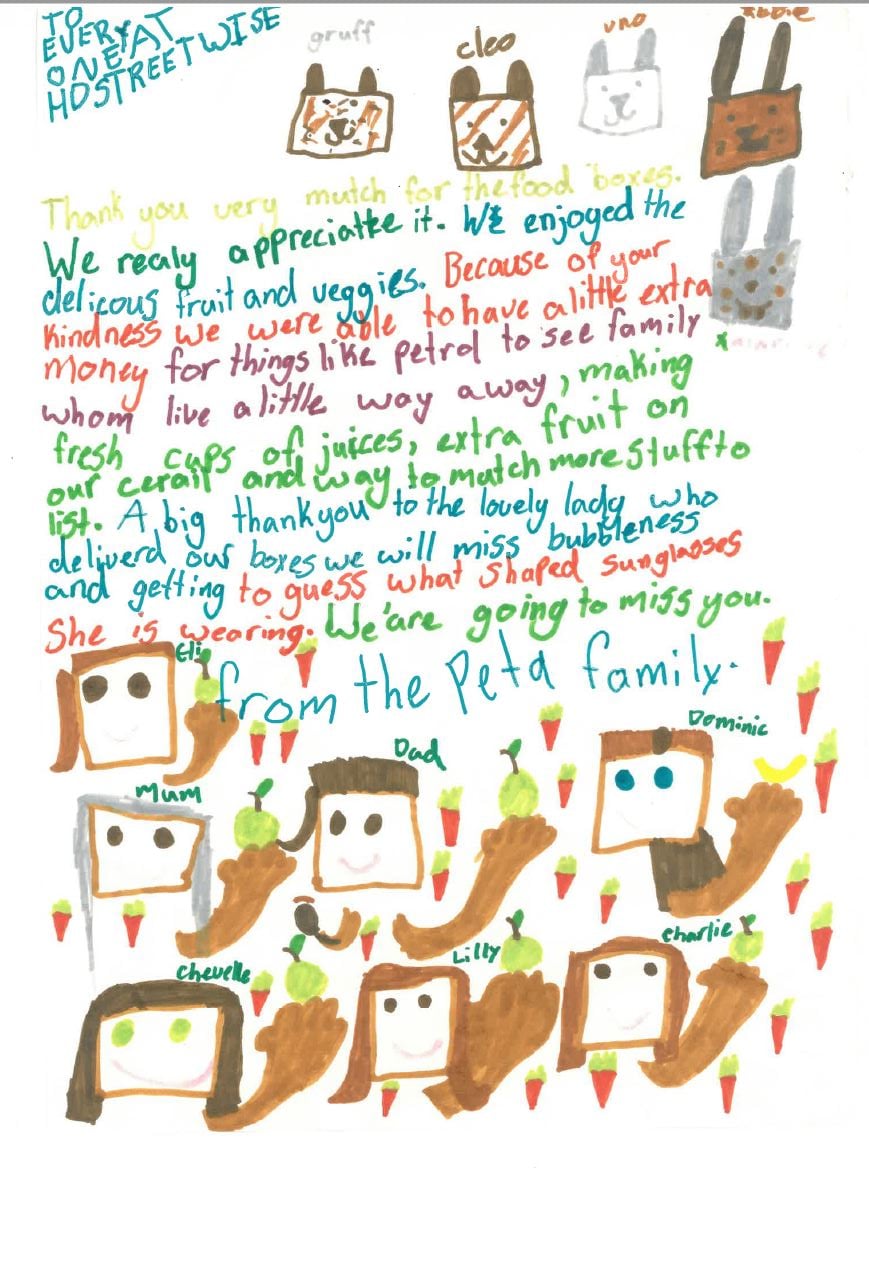 TO
EVERY AT
ONE
HDSTREETWISE
gruff
cleo
uno
Thank you very mutch for the food boxes.
We realy appreciatke it. We enjoyed the
delicous fruit and veggies. Because of your
kindness we were able to have a little extra
money for things like petrol to see family
whom live a little way away, making
fresh cups of juices, extra fruit on
our cerail and way to mutch more stuff to
list. A big thankyou to the lovely lady who
deliverd our boxes we will miss bubbleness
and getting to guess what shaped sunglasses
She is wearing. We'are going to miss you.
from the Peta family.
Eli
Dad
Dominic
Mum
Chevelle
Lilly
Charlie